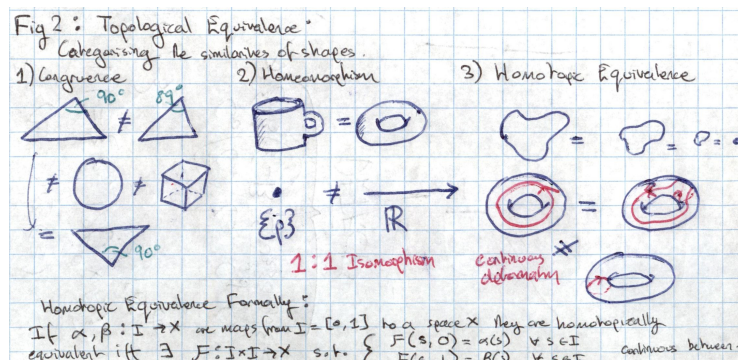 Fig 2: Topological Equivalence:
Categorising the similarities of shapes.
1) Congruence
2) Homeomorphism
3) Homotopic Equivalence
90° ≠ 89°
=
= = =
≠ ≠
{p} ≠ ℝ
=
= 90°
1:1 Isomorphism
continuous
deformation
Homotopic Equivalence Formally:
If α, β : I → X are maps from I = [0,1] to a space X they are homotopically
equivalent iff ∃ F: I×I → X s.t. { F(s,0) = α(s) ∀ s∈I
F(s,1) = β(s) ∀ s∈I
continuous between